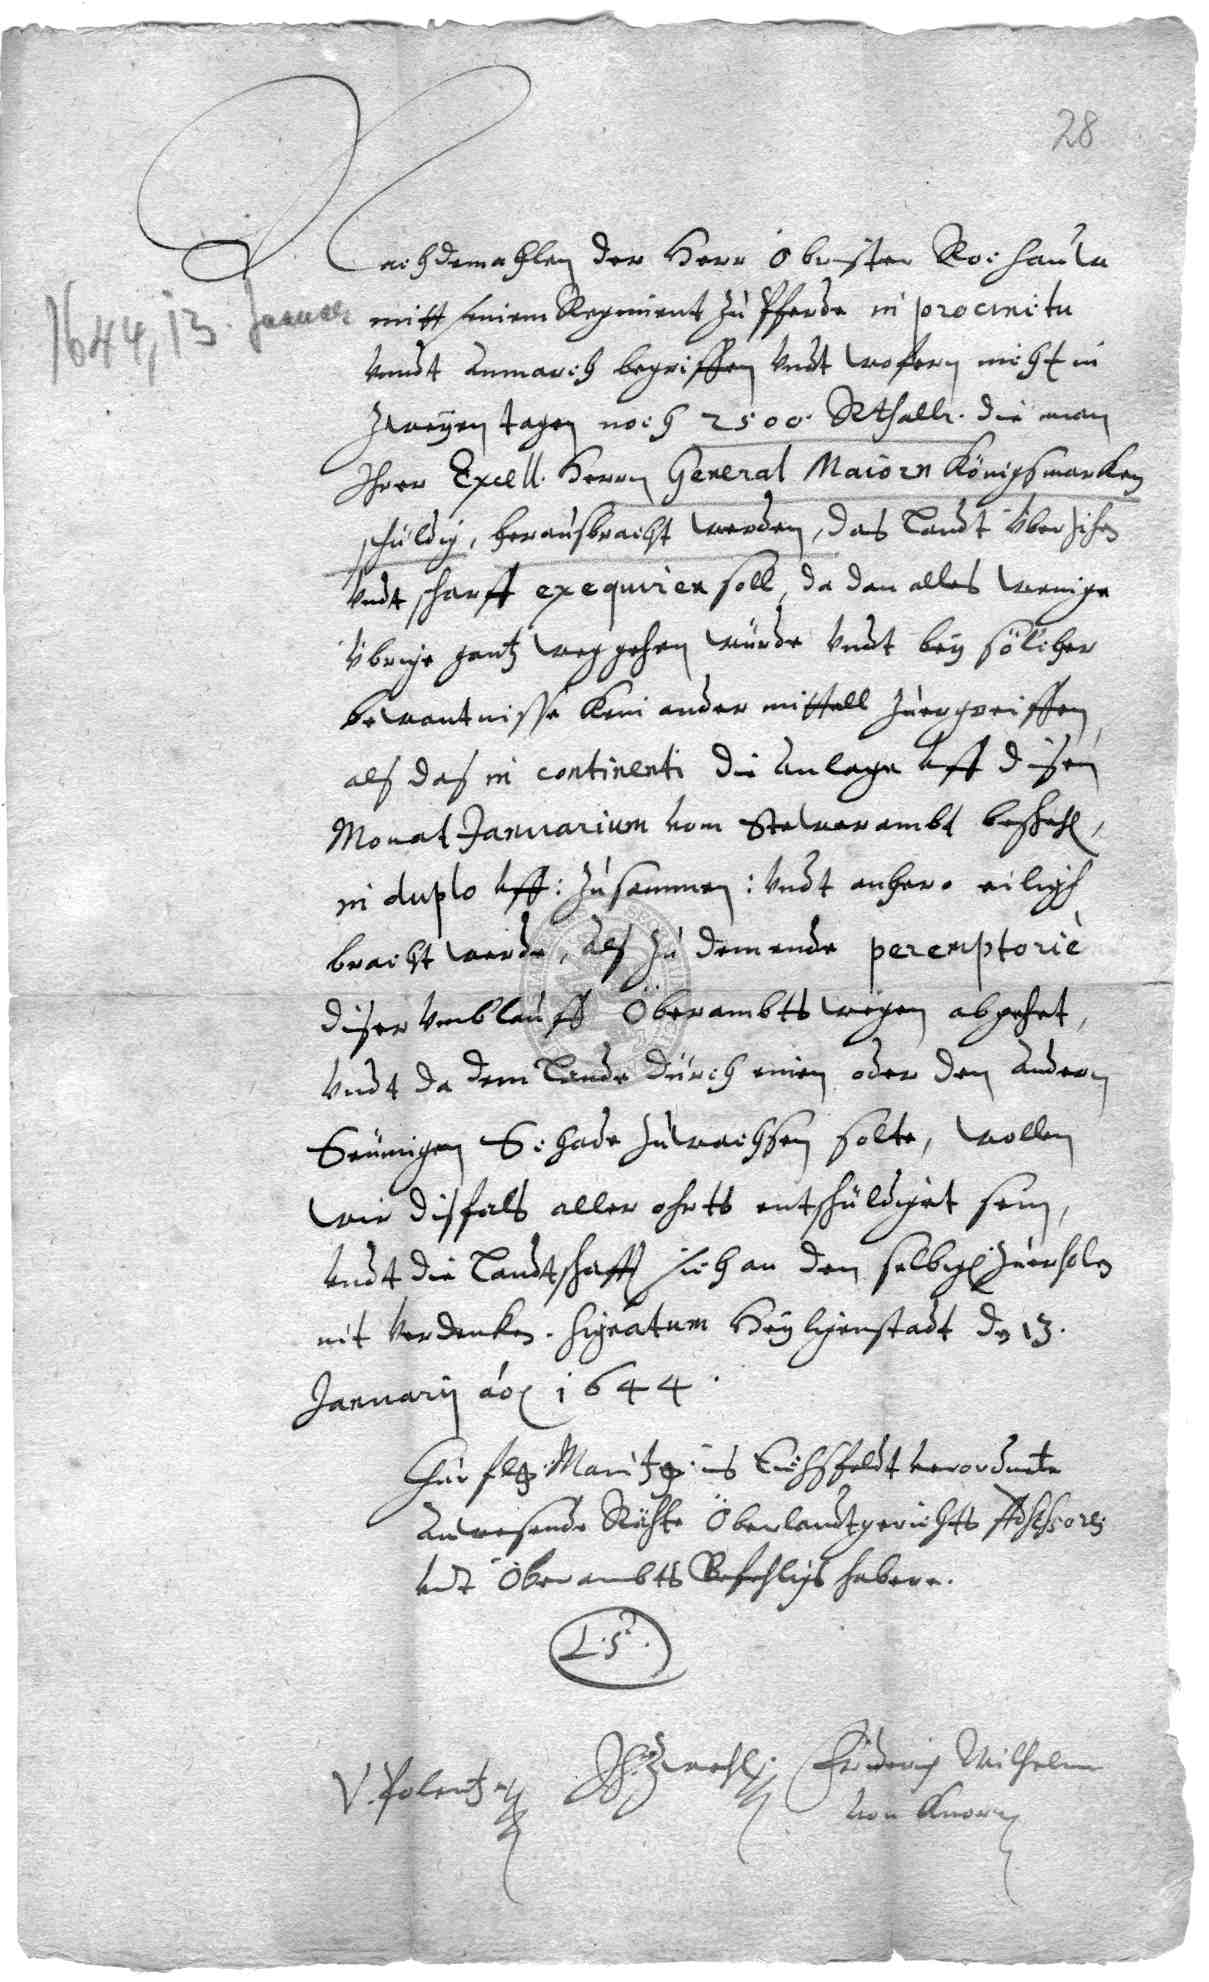 28
1644, 13. Januar
Nachdemahlen der Herr Obrister Rochauw
mitt seinem Regiment zu Pferde in procinctu
vnndt anmarch begriffen vndt wofern nicht in
zweyen tagen noch 2500 Rthalr. die man
Ihrer Excell. Herrn General Maiorn Königsmarken
schuldig, herausbracht werden, das Landt vberzihen
vndt scharff exequiren soll, da dan alles wenige
vbrige gantz weggehen würde vndt bey sölicher
bewantnisse kein ander mittell zuergreiffen,
als das in continenti die Anlage vff disen
Monat Januarium vom Stewerambt
in duplo vff: zusammen: vndt anhero eiligst
bracht werde, als zu dem ende peremptoriè
diser vmblauff Oberambts wegen abgehet,
vndt da dem Lande durch einen oder den andern
Seumigen Schade zuwachsen solte, wollen
wir disfals aller ohrts entschuldiget sein,
vndt die Landtschafft sich an den selbigen zuerholen
nit verdenken. Signatum Heyligenstadt den 13.
Januarij ao 1644.
Churfl. Maintz. ins Eichsfeldt verordnete
anwesende Räthe Oberlandtgerichts Assessores
vndt Oberambts Befehlighabere.
L.S.
V. Polentz
Friderich Wilhelm
von Knorr